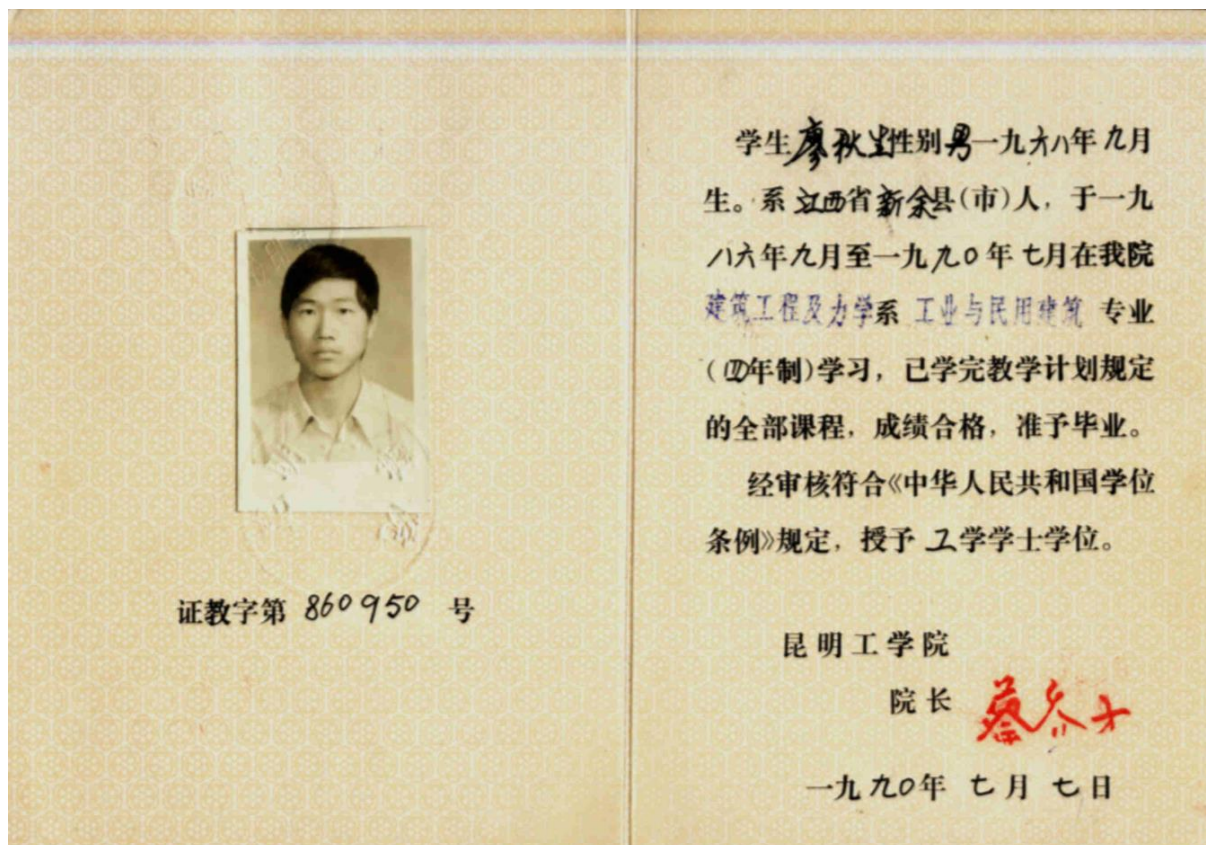 证教字第 860950 号
学生廖秋生性别男一九六八年九月
生。系江西省新余县(市)人，于一九
八六年九月至一九九〇年七月在我院
建筑工程及力学系 工业与民用建筑 专业
(四年制)学习，已学完教学计划规定
的全部课程，成绩合格，准予毕业。
经审核符合《中华人民共和国学位
条例》规定，授予 工学学士学位。
昆明工学院
院长
一九九〇年 七月 七日